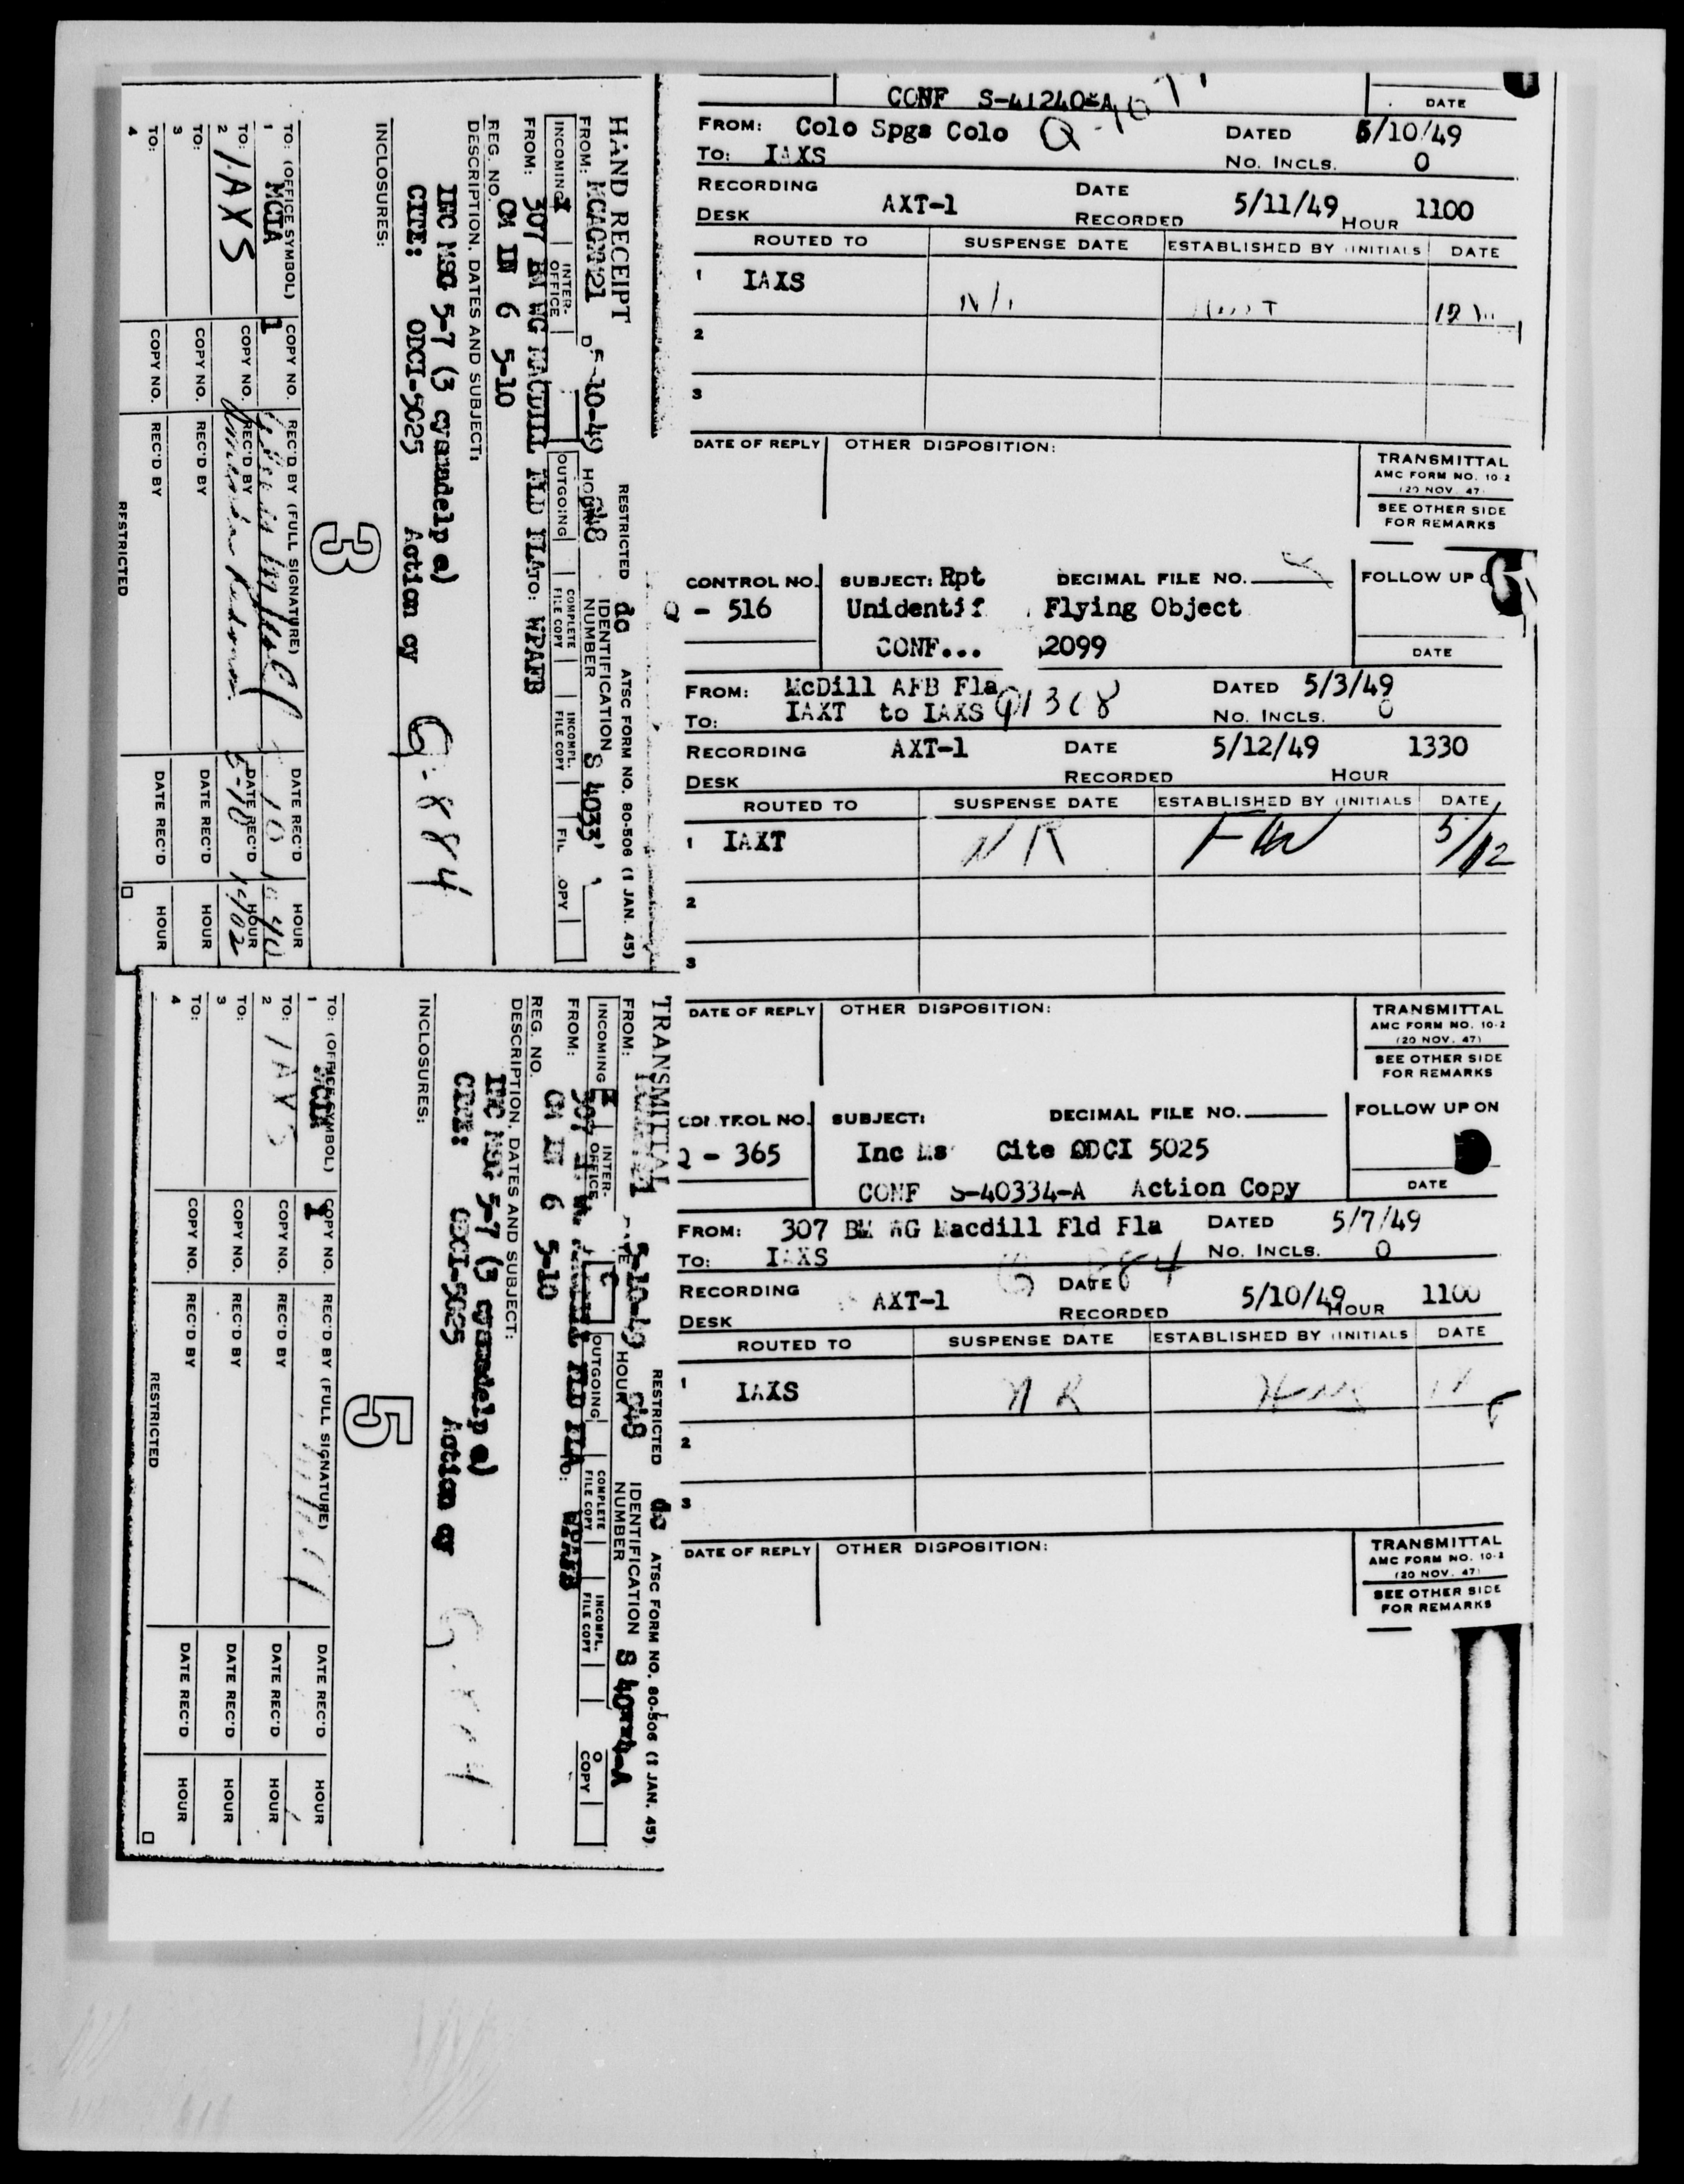 CONF S-41240-A
DATE
FROM: Colo Spgs Colo DATED 5/10/49
TO: IAXS NO. INCLS. 0
RECORDING DESK AXT-1 DATE RECORDED 5/11/49 HOUR 1100
ROUTED TO SUSPENSE DATE ESTABLISHED BY (INITIALS) DATE
1 IAXS
2
3
DATE OF REPLY OTHER DISPOSITION:
TRANSMITTAL
AMC FORM NO. 10-2
(20 NOV. 47)
SEE OTHER SIDE
FOR REMARKS
CONTROL NO. SUBJECT: Rpt DECIMAL FILE NO. FOLLOW UP
Q - 516 Unidentif Flying Object
CONF... 2099
DATE
FROM: McDill AFB Fla DATED 5/3/49
TO: IAXT to IAXS NO. INCLS. 0
RECORDING DESK AXT-1 DATE RECORDED 5/12/49 HOUR 1330
ROUTED TO SUSPENSE DATE ESTABLISHED BY (INITIALS) DATE
1 IAXT NR FW 5/12
2
3
DATE OF REPLY OTHER DISPOSITION:
TRANSMITTAL
AMC FORM NO. 10-2
(20 NOV. 47)
SEE OTHER SIDE
FOR REMARKS
CONTROL NO. SUBJECT: DECIMAL FILE NO. FOLLOW UP ON
- 365 Inc Ms Cite ODCI 5025
CONF S-40334-A Action Copy
DATE
FROM: 307 BM WG Macdill Fld Fla DATED 5/7/49
TO: IAXS NO. INCLS. 0
RECORDING DESK AXT-1 DATE RECORDED 5/10/49 HOUR 1100
ROUTED TO SUSPENSE DATE ESTABLISHED BY (INITIALS) DATE
1 IAXS NR
2
3
DATE OF REPLY OTHER DISPOSITION:
TRANSMITTAL
AMC FORM NO. 10-2
(20 NOV. 47)
SEE OTHER SIDE
FOR REMARKS
HAND RECEIPT RESTRICTED dc ATSC FORM NO. 80-506 (1 JAN. 45)
FROM: 5-10-49 HOUR IDENTIFICATION NUMBER S 4033
INCOMING X INTER-OFFICE OUTGOING COMPLETE FILE COPY INCOMPL. FILE COPY
FROM: 307 BM WG MACDILL FLD FLA TO: WPAFB
REG. NO. CM IN 6 5-10
DESCRIPTION, DATES AND SUBJECT:
INC MSG 5-7 (3 cysadelp e)
CITE: ODCI-5025 Action cy Q-884
INCLOSURES:
3
TO: (OFFICE SYMBOL) COPY NO. REC'D BY (FULL SIGNATURE) DATE REC'D HOUR
1 MCIA 1
TO: COPY NO. REC'D BY DATE REC'D HOUR
2 IAXS 5-10 1402
TO: COPY NO. REC'D BY DATE REC'D HOUR
3
TO: COPY NO. REC'D BY DATE REC'D HOUR
4
RESTRICTED
TRANSMITTAL RESTRICTED dc ATSC FORM NO. 80-506 (1 JAN. 45)
FROM: DATE 5-10-49 HOUR IDENTIFICATION NUMBER
INCOMING X INTER-OFFICE OUTGOING COMPLETE FILE COPY INCOMPL. FILE COPY
FROM: 307 FLD FLA TO: WPAFB
REG. NO. CM IN 6 5-10
DESCRIPTION, DATES AND SUBJECT:
INC MSG 5-7 (3 cysadelp e)
CITE: ODCI-5025 Action cy
INCLOSURES:
5
TO: (OFFICE SYMBOL) COPY NO. REC'D BY (FULL SIGNATURE) DATE REC'D HOUR
1 MCIA 1
TO: COPY NO. REC'D BY DATE REC'D HOUR
2 IAXS
TO: COPY NO. REC'D BY DATE REC'D HOUR
3
TO: COPY NO. REC'D BY DATE REC'D HOUR
4
RESTRICTED